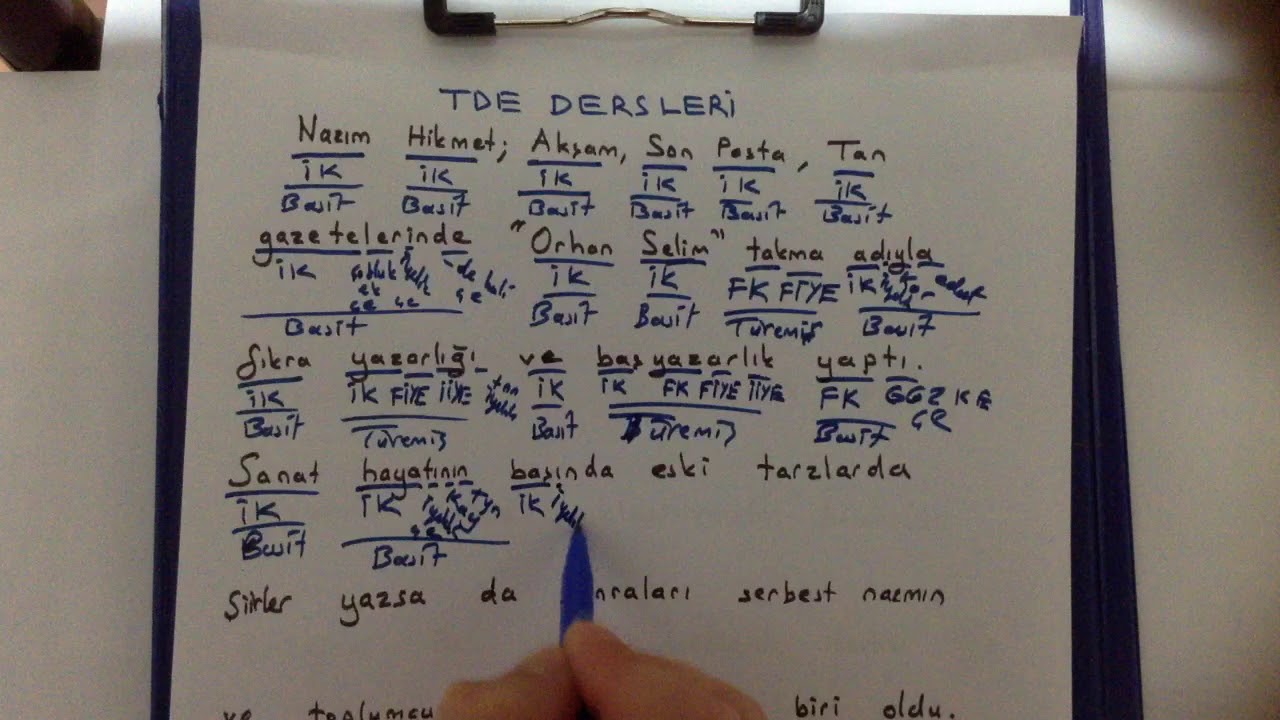 TDE DERSLERİ
Nazım Hikmet; Akşam, Son Posta, Tan
İK İK İK İK İK İK
Basit Basit Basit Basit Basit Basit
gazetelerinde "Orhan Selim" takma adıyla
İK İK İK FK FİYE İK
Basit Basit Basit Türemiş Basit
fıkra yazarlığı ve başyazarlık yaptı.
İK İK FİYE İİYE İK İK FK FİYE İİYE FK GGZ KE
ÇE
Basit Türemiş Basit Türemiş Basit
Sanat hayatının başında eski tarzlarda
İK İK İK
Basit Basit
Şiirler yazsa da serbest nazmın
ve toplumcu biri oldu.